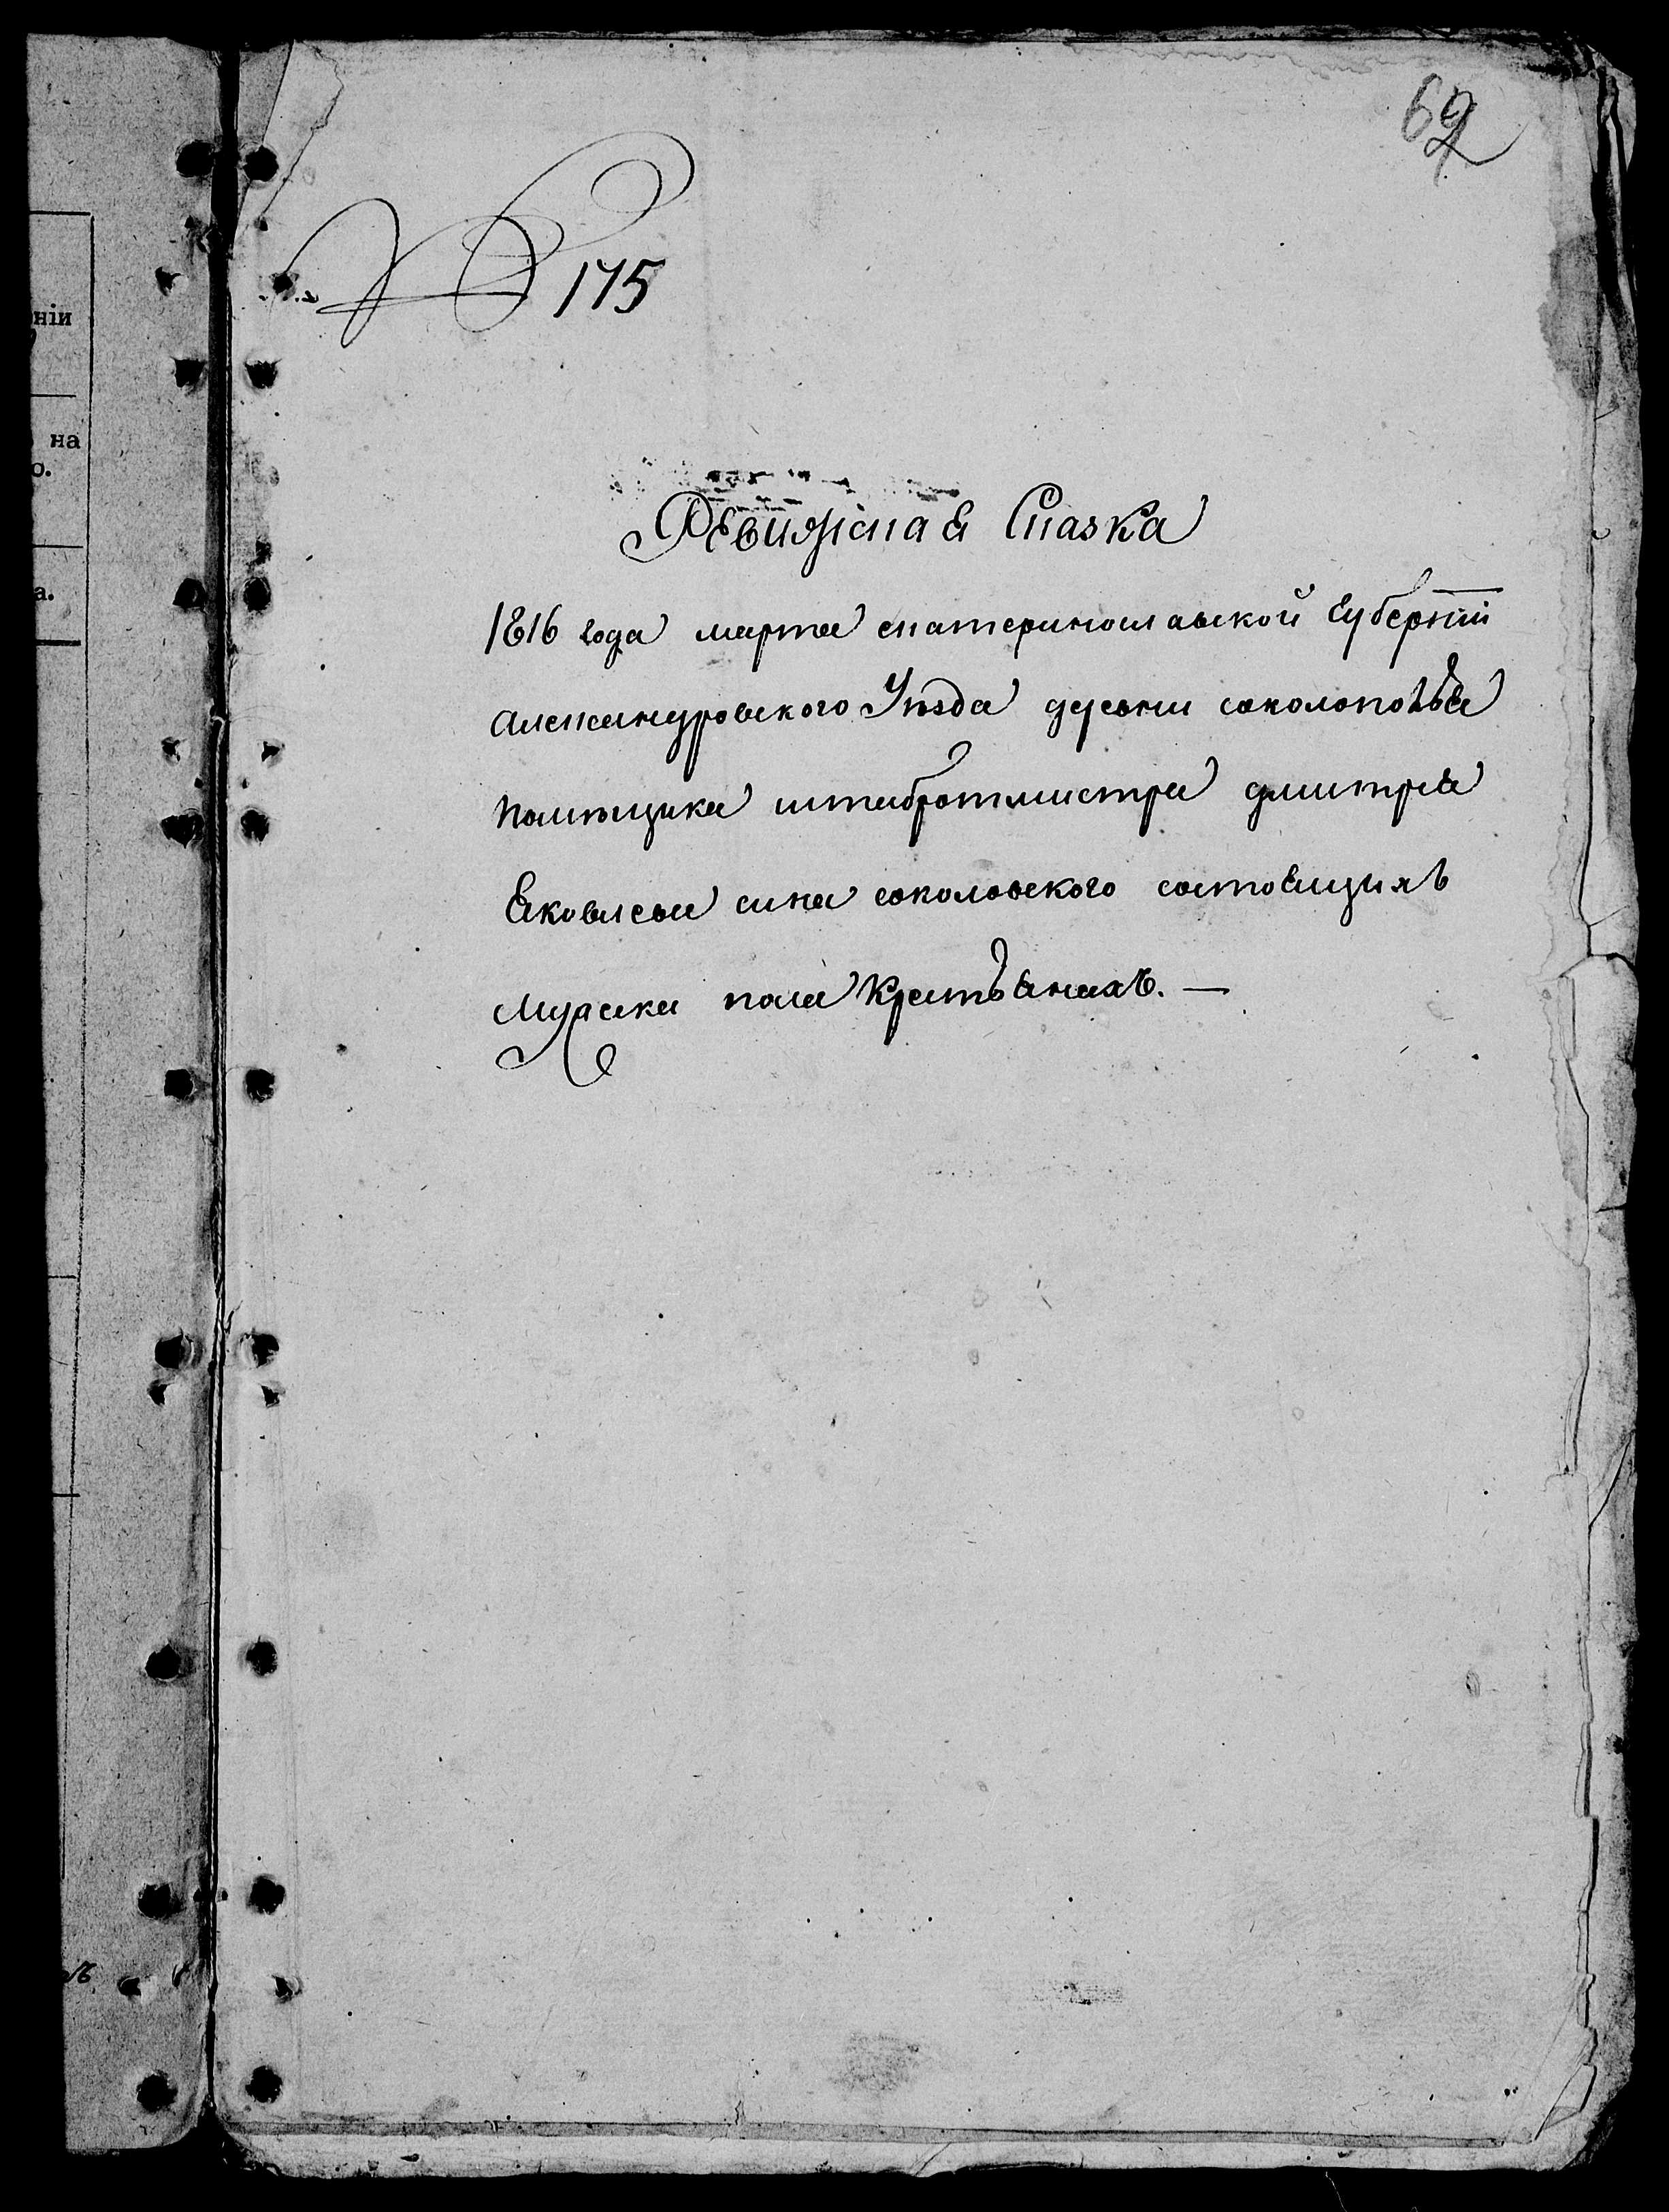 62
№ 175
ніи
на
о.
а.
Ревизская Сказка
1816 года марта екатеринославской губерніи
александровского Уѣзда деревни
помѣщика штабротмистра дмитрия
Яковлева сина соколовского состоящихъ
мужска пола Крестьянахъ. —